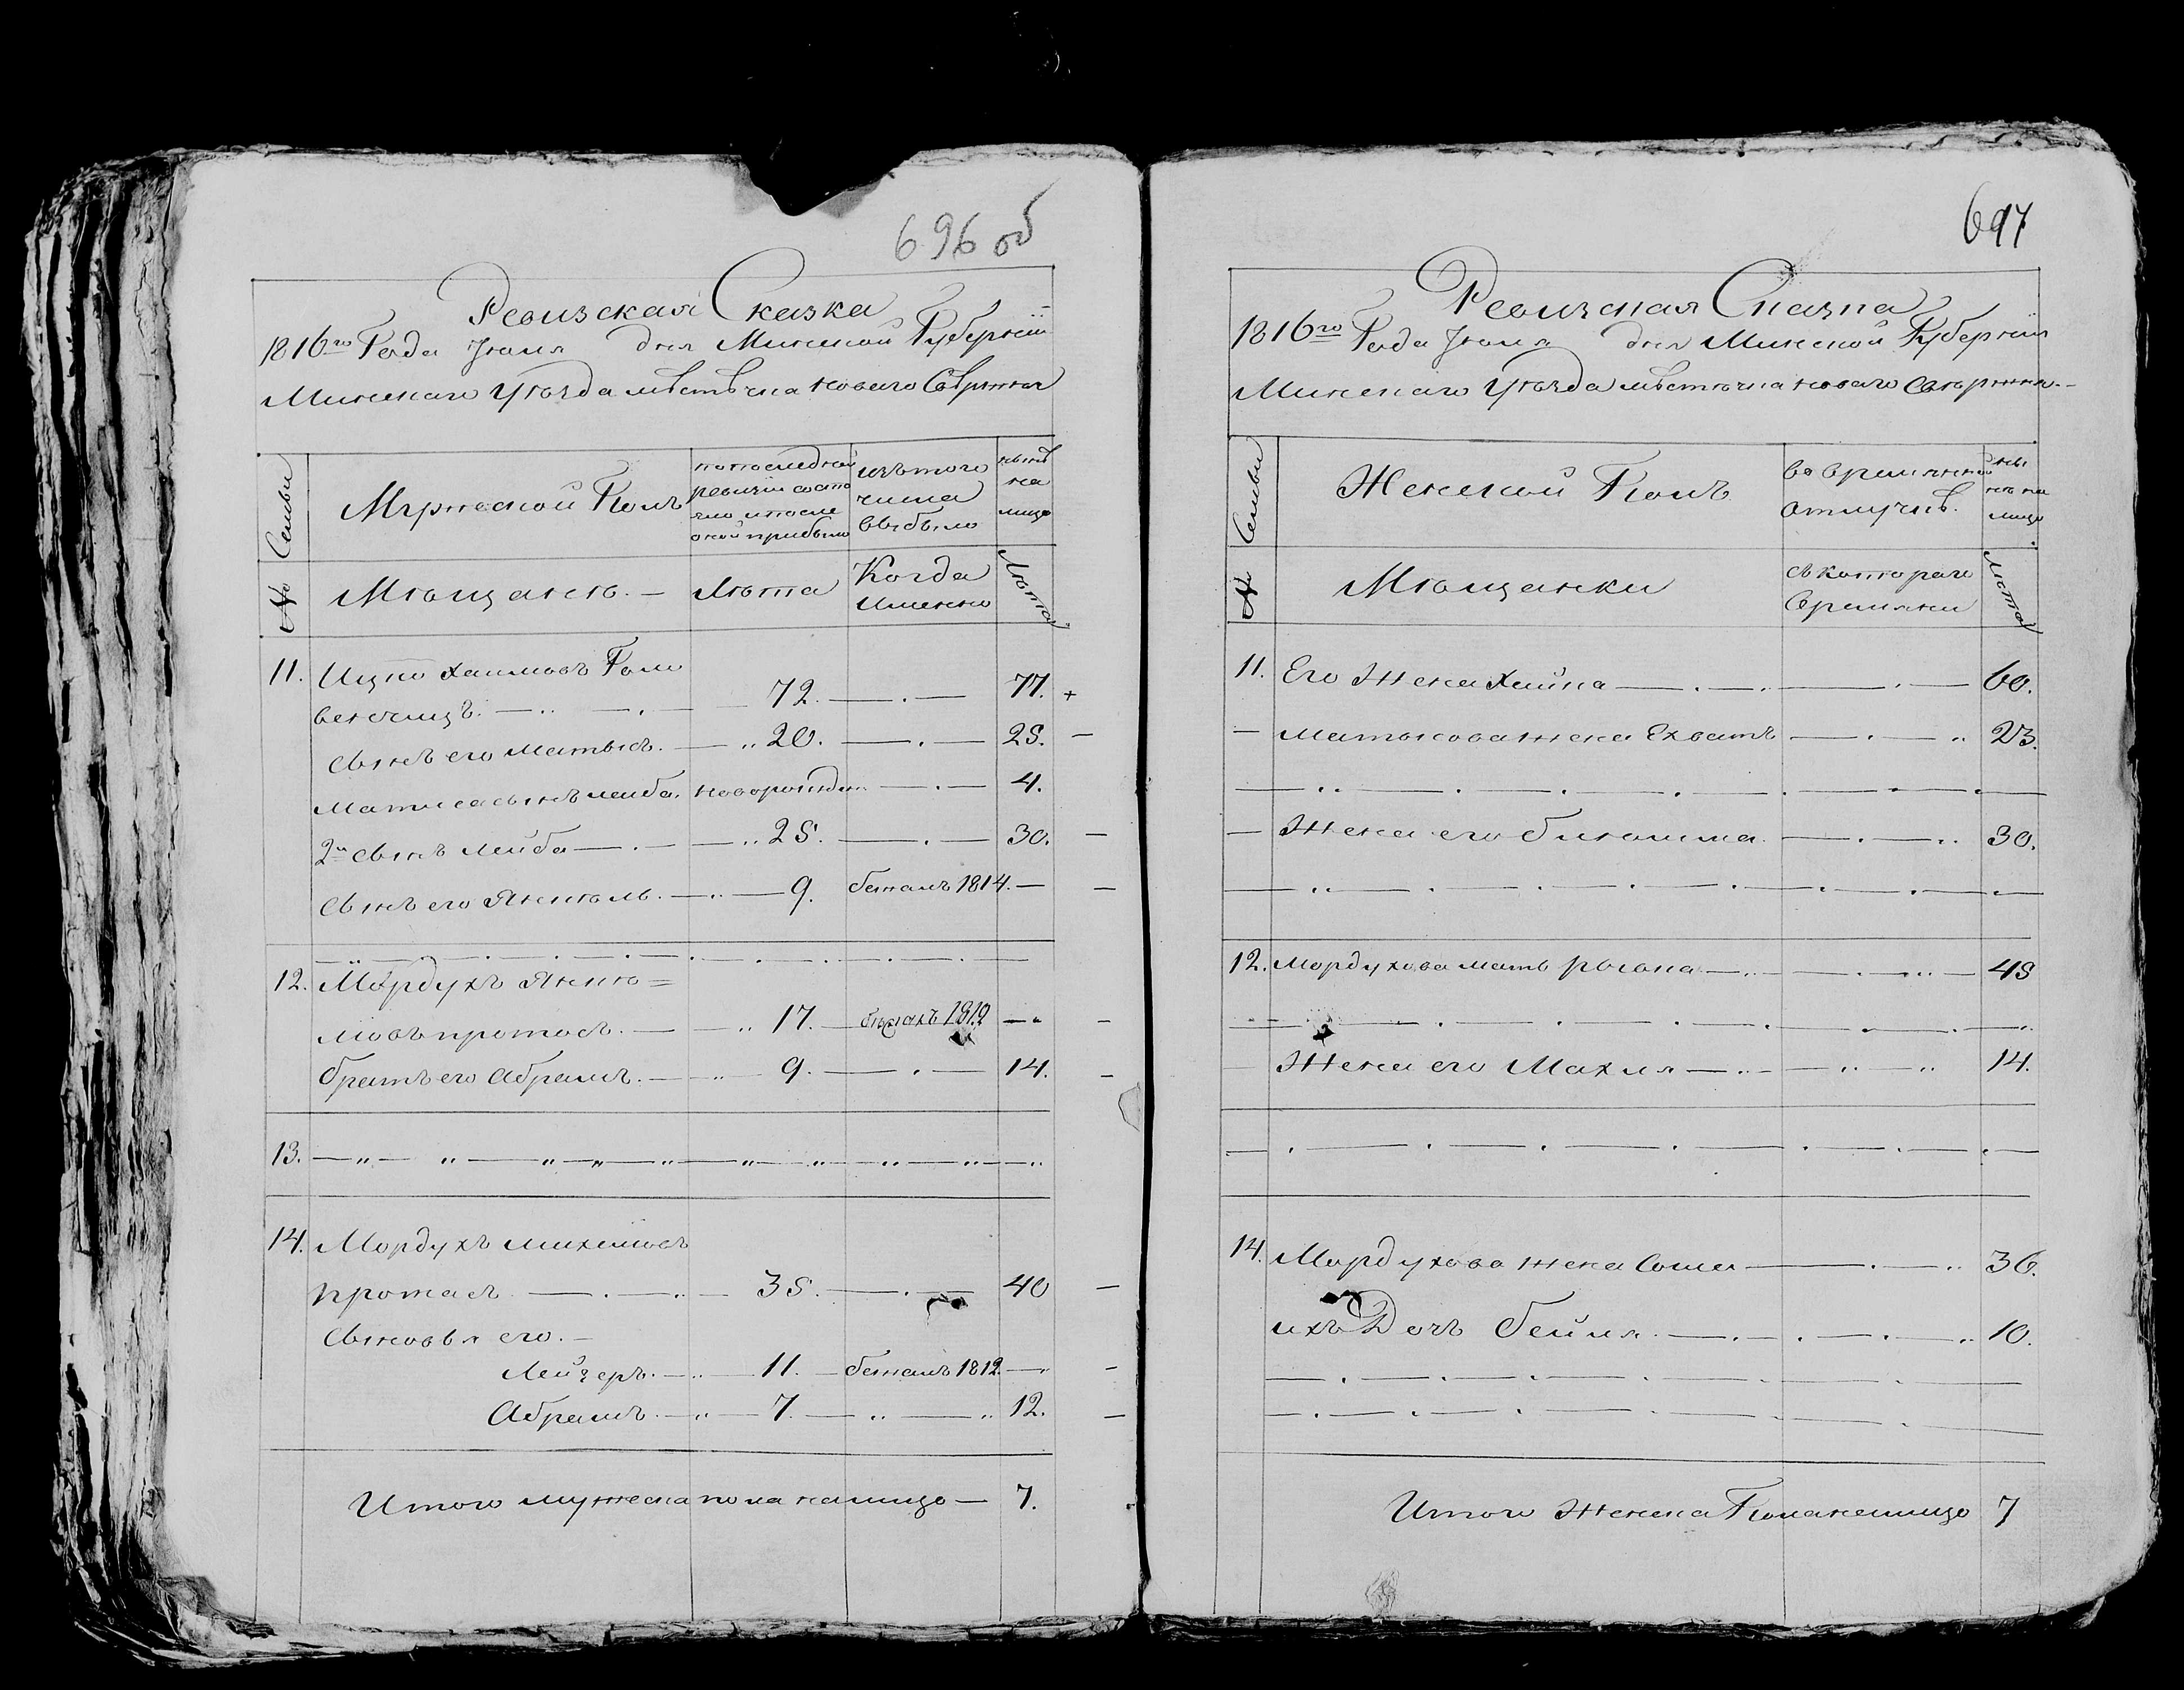 696 об
Ревизская Сказка
1816го Года Июля дня Минской Губернии
Минскаго Уезда местечка новаго Свержня
№ Семьи
Мужеской Полъ
по последней
ревизии состо
яло и после
оной прибыло
изъ того
числа
выбыло
ныне
на
лицо
Мещане. —
Лета
Когда
Именно
Лета
11. Ицко Хаимовъ Голи
72. 77. +
сынъ его Матысъ. 20. 25. —
Матиса сынъ лейба. новорожден 4.
2й сынъ лейба 25. 30. —
сынъ его Янкель. 9. бежалъ 1814. —
12. Мордухъ Янке=
левъ протасъ. 17. 1812 —
братъ его Абрамъ. 9. 14. —
13.
14. Мордухъ михелевъ
протасъ 35. 40 —
Сыновья его. —
Лейзеръ. 11. бежалъ 1812. —
Абрамъ. 7. 12. —
Итого мужеска пола налицо — 7.
697
Ревизская Сказка
1816го Года Июля дня Минской Губернии
Минскаго Уезда местечка новаго Свержня. —
№ Семьи
Женской Полъ
во временной
отлучке.
ны
не на
лицо
Мещанки
съ котораго
времяни
Лета
11. Его Жена Хайка 60.
— Матысова жена Ехватъ 23.
— Жена его 30.
12. Мордухова мать 45
Жена его Махля 14.
14. Мордухова жена Соша 36.
ихъ Дочь Бейля. 10.
Итого Женска Пола налицо 7